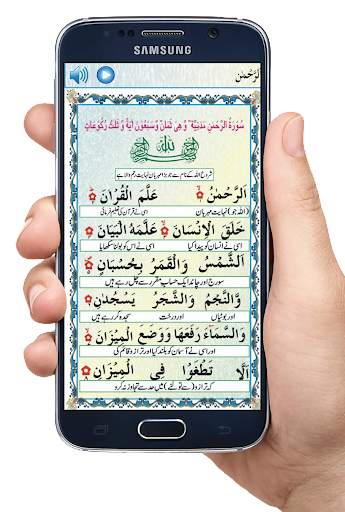 SAMSUNG
اَلرَّحْمٰن
سُوْرَةُ الرَّحْمٰنِ مَدَنِيَّةٌ وَّ هِىَ ثَمَانٍ وَّسَبْعُوْنَ اٰيَةً وَّ ثَلٰثُ رُكُوْعَاتٍ
شروع اللہ کے نام سے جو بڑا مہربان نہایت رحم والا ہے
اَلرَّحْمٰنُ عَلَّمَ الْقُرْاٰنَ
(اللہ جو) نہایت مہربان اسی نے قرآن کی تعلیم فرمائی
خَلَقَ الْاِنْسَانَ عَلَّمَهُ الْبَيَانَ
اسی نے انسان کو پیدا کیا اسی نے اس کو بولنا سکھایا
اَلشَّمْسُ وَالْقَمَرُ بِحُسْبَانٍ
سورج اور چاند ایک حساب مقرر سے چل رہے ہیں
وَّالنَّجْمُ وَالشَّجَرُ يَسْجُدٰنِ
اور بوٹیاں اور درخت سجدہ کر رہے ہیں
وَالسَّمَآءَ رَفَعَهَا وَوَضَعَ الْمِيْزَانَ
اور اسی نے آسمان کو بلند کیا اور ترازو قائم کی
اَلَّا تَطْغَوْا فِى الْمِيْزَانِ
کہ ترازو (سے تولنے) میں حد سے تجاوز نہ کرو